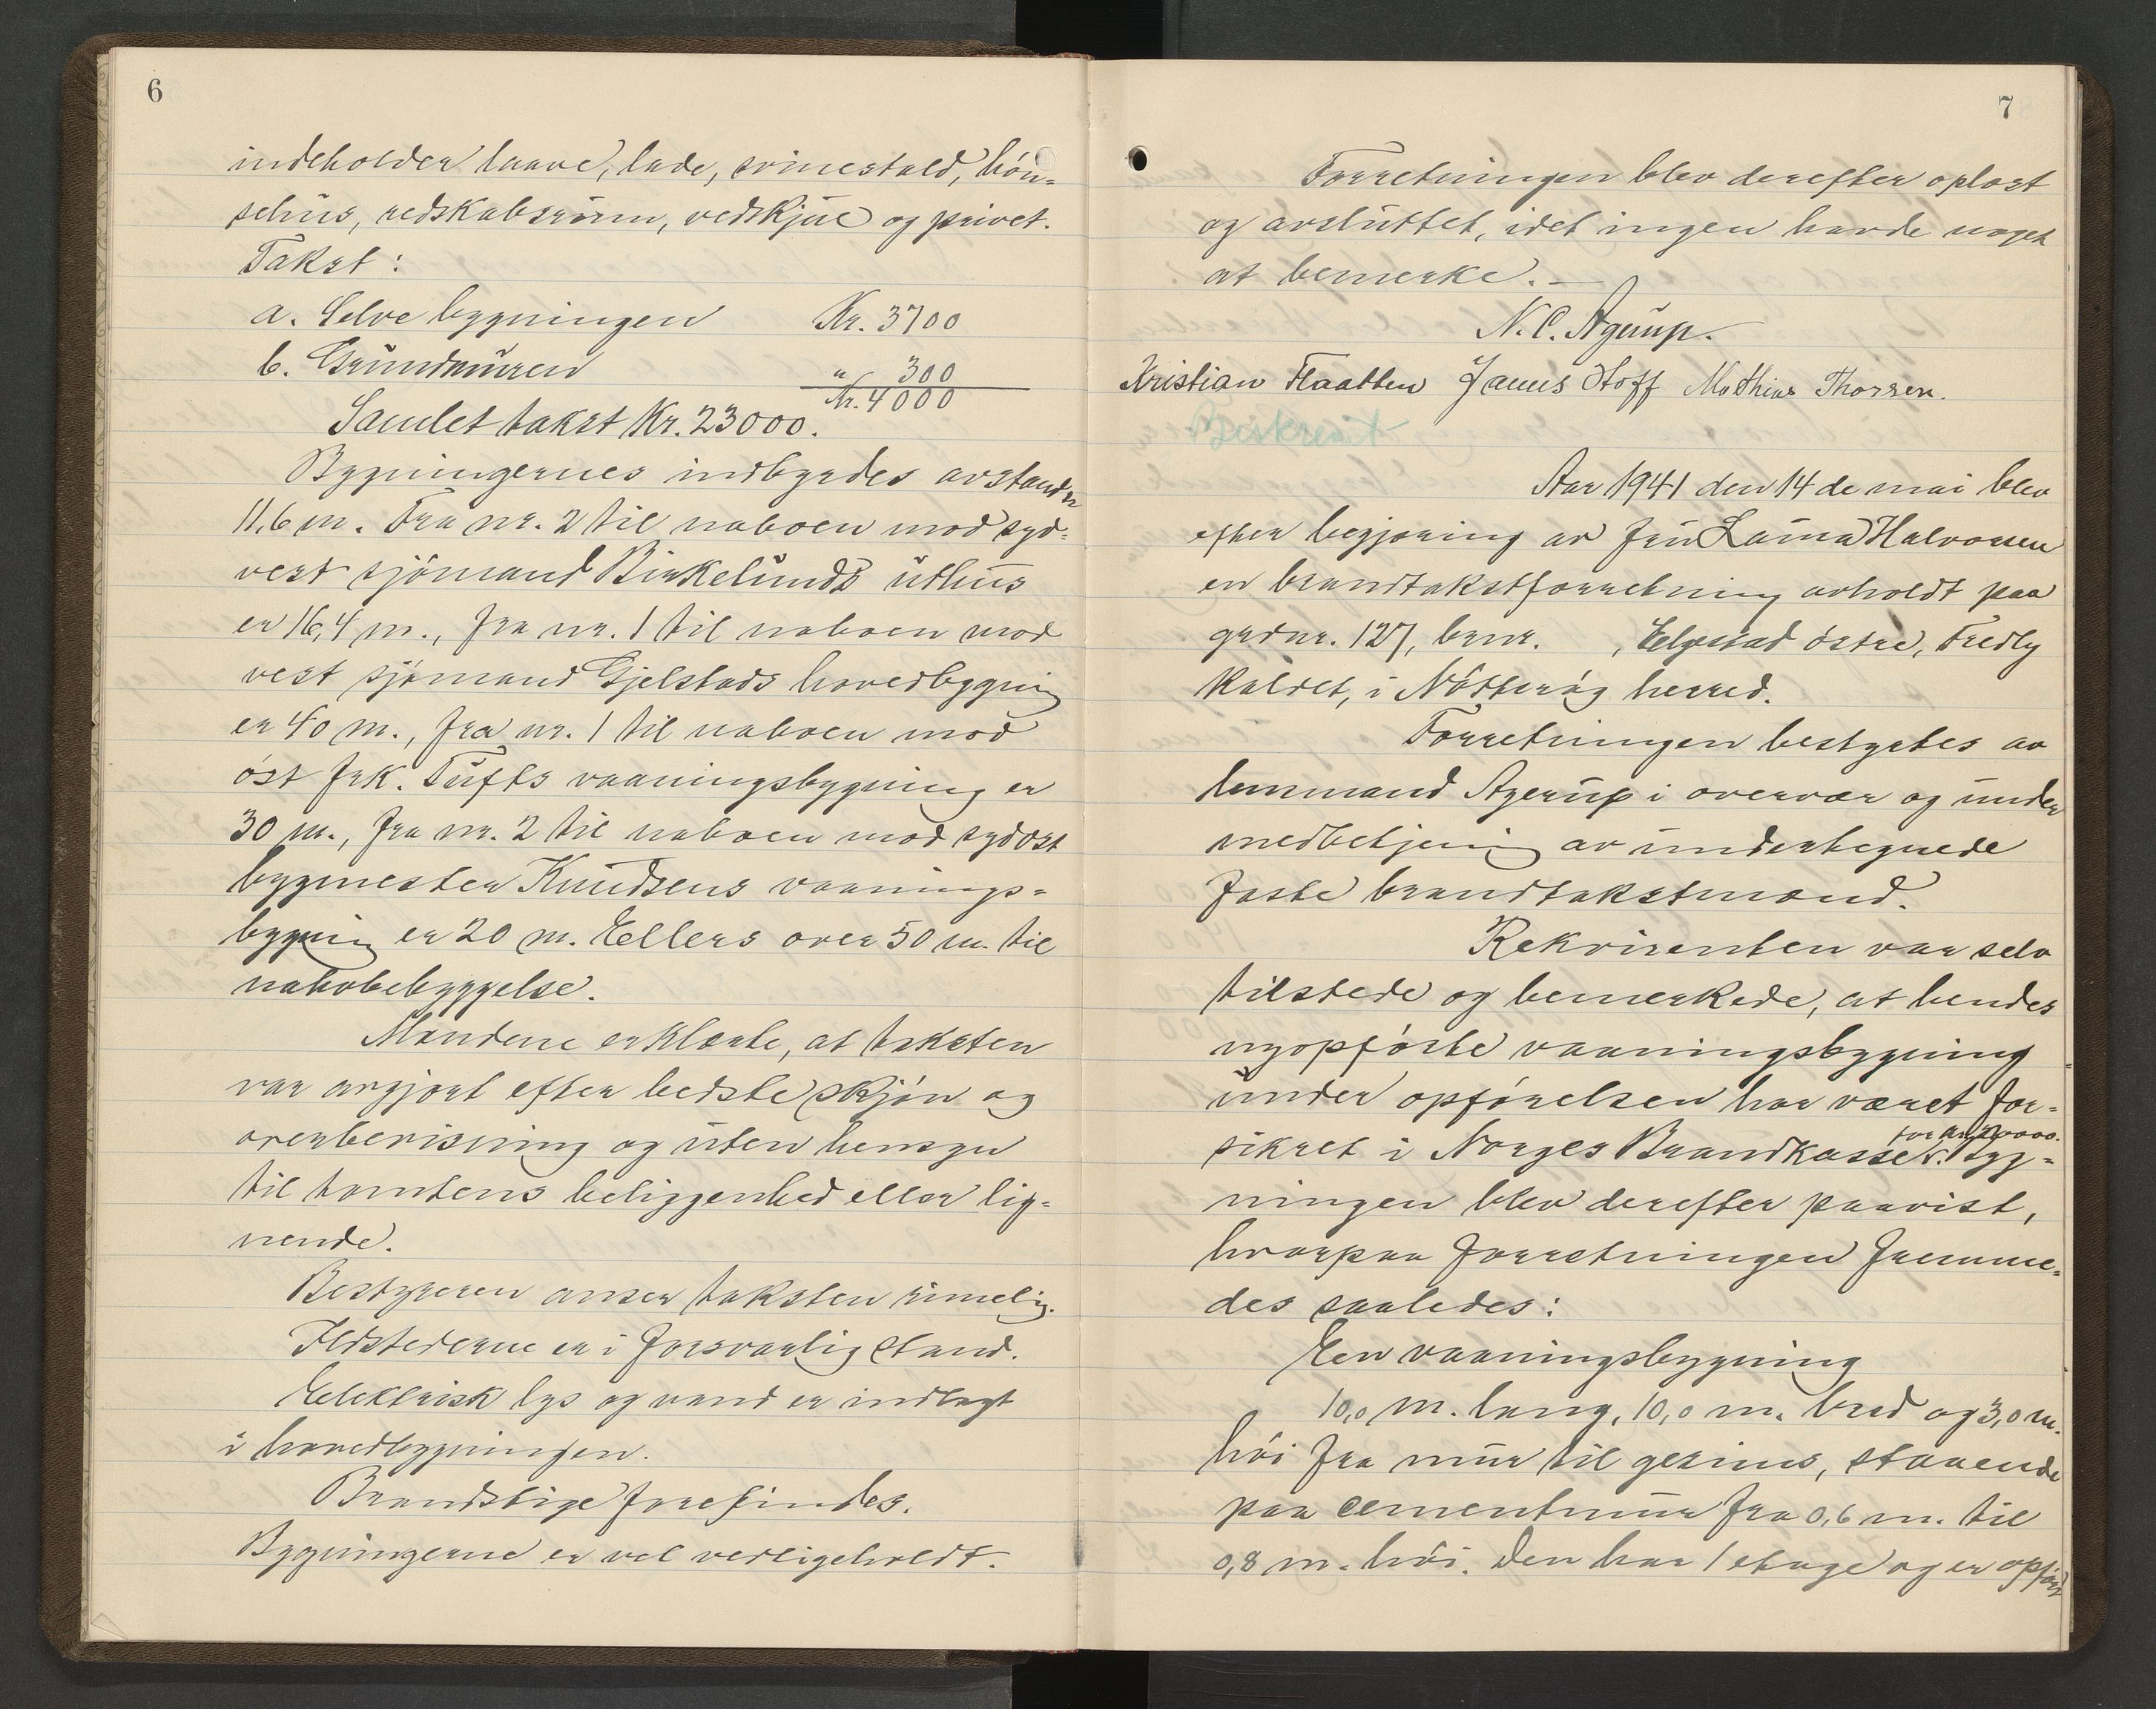 6
indeholder laave, lade, svinestald, høn-
sehus, redskabsrum, vedskjul og privet.
Takst:
a. Selve bygningen Kr. 3700
b. Grundmuren " 300
Kr. 4000
Samlet takst Kr. 23000.
Bygningernes indbyrdes avstand er
11,6 m. Fra nr. 2 til naboen mod syd-
vest sjømand Birkelunds uthus
er 16,4 m., fra nr. 1 til naboen mod
vest sjømand Gjelstads hovedbygning
er 40 m., fra nr. 1 til naboen mod
øst frk. Tufts vaaningsbygning er
30 m., fra nr. 2 til naboen mod sydøst
bygmester Knudsens vaanings-
bygning er 20 m. Ellers over 50 m. til
nabobebyggelse.
Mændene erklærte, at taksten
var avgjort efter bedste skjøn og
overbevisning og uten hensyn
til tomtens beliggenhed eller lig-
nende.
Bestyreren anser taksten rimelig.
Ildstederne er i forsvarlig stand.
Elektrisk lys og vand er indlagt
i hovedbygningen.
Brandstige forefindes.
Bygningerne er vel vedligeholdt.
7
Forretningen blev derefter oplæst
og avsluttet, idet ingen havde noget
at bemerke. —
N. C. Agerup.
Kristian Flaatten James Hoff Mathias Thorsen.
Aar 1941 den 14 de mai blev
efter begjæring av fru Laura Halvorsen
en brandtakstforretning avholdt paa
grdnr. 127, brnr. , Elgestad østre, Fredly
kaldet, i Nøtterøy herred.
Forretningen bestyrtes av
lensmand Agerup i overvær og under
medbetjening av undertegnede
faste brandtakstmænd.
Rekvirenten var selv
tilstede og bemerkede, at hendes
nyopførte vaaningsbygning
under opførelsen har været for-
for kr. 12000.
sikret i Norges Brandkasse. Byg-
ningen blev derefter paavist,
hvorpaa forretningen fremme-
des saaledes:
Een vaaningsbygning
10,0 m. lang, 10,0 m. bred og 3,0 m.
høi fra mur til gesims, staaende
paa cementmur fra 0,6 m. til
0,8 m. høi. Den har 1 etage og er opført